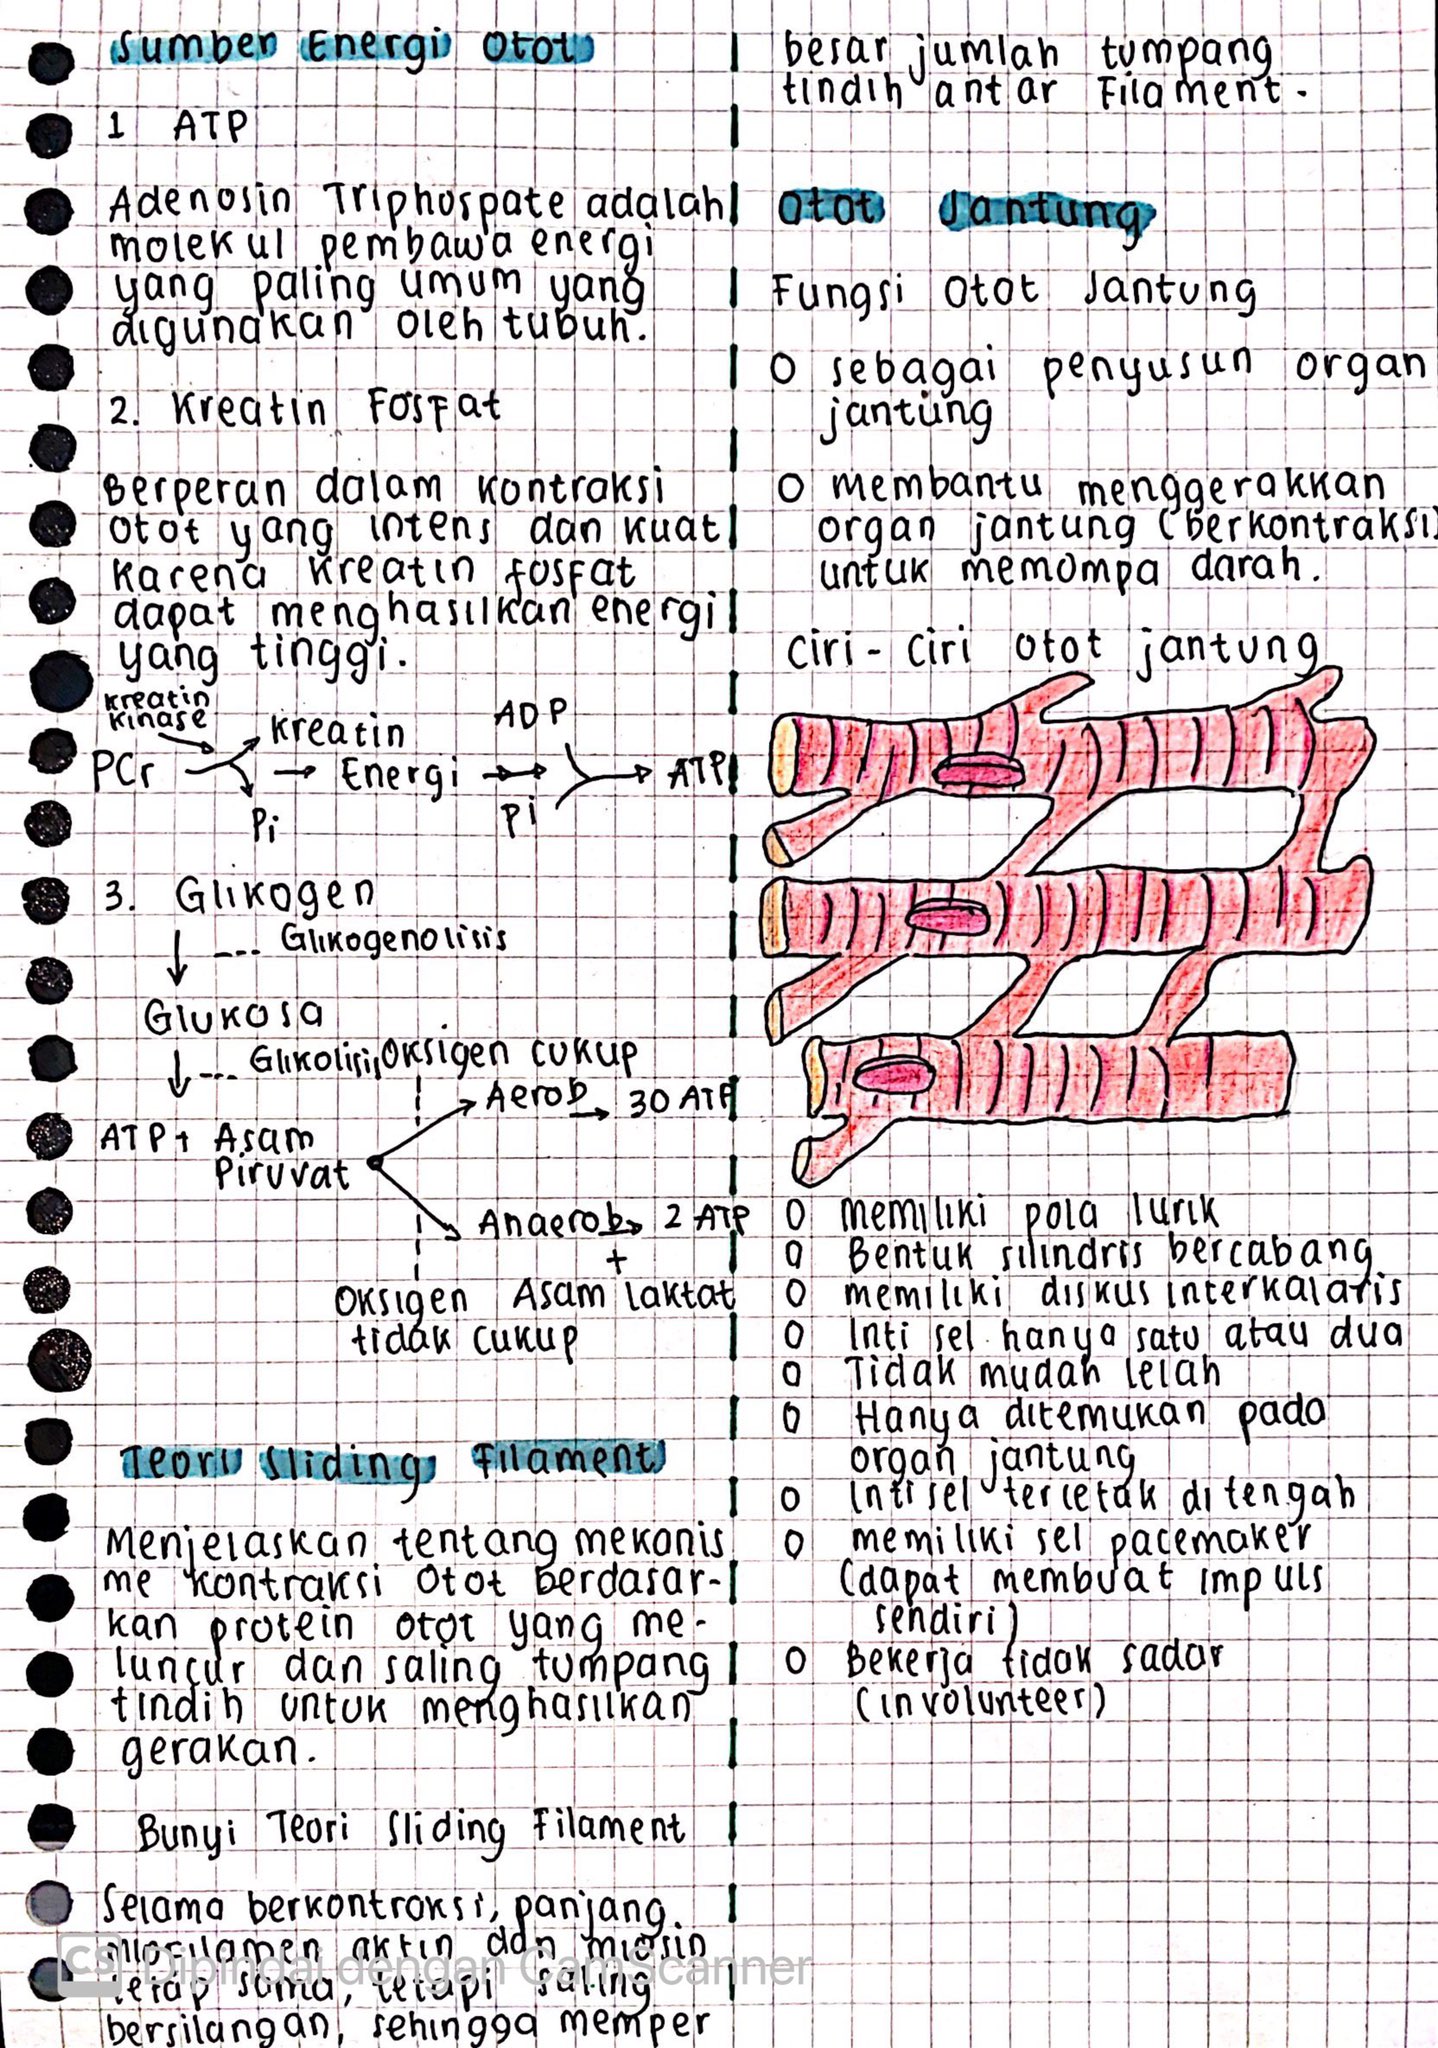 Sumber Energi Otot
1 ATP
Adenosin Triphospate adalah
molekul pembawa energi
yang paling umum yang
digunakan oleh tubuh.
2. Kreatin Fosfat
Berperan dalam kontraksi
otot yang intens dan kuat
karena kreatin fosfat
dapat menghasilkan energi
yang tinggi.
kreatin
kinase
PCr → Kreatin
Pi
→ Energi →→ ADP
Pi
→ ATP
3. Glikogen
↓ --- Glikogenolisis
Glukosa
↓ --- Glikolisis
Oksigen cukup
Aerob → 30 ATP
ATP + Asam
Piruvat
Anaerob → 2 ATP
+
Oksigen Asam laktat
tidak cukup
Teori Sliding Filament
Menjelaskan tentang mekanis
me kontraksi otot berdasar-
kan protein otot yang me-
luncur dan saling tumpang
tindih untuk menghasilkan
gerakan.
Bunyi Teori Sliding Filament
Selama berkontraksi, panjang
miofilamen aktin dan miosin
tetap sama, tetapi saling
bersilangan, sehingga memper
CS Dipindai dengan CamScanner
besar jumlah tumpang
tindih antar Filament.
Otot Jantung
Fungsi Otot Jantung
O sebagai penyusun organ
jantung
O membantu menggerakkan
organ jantung (berkontraksi)
untuk memompa darah.
Ciri - Ciri Otot jantung
O memiliki pola lurik
O Bentuk silindris bercabang
O memiliki diskus interkalaris
O Inti sel hanya satu atau dua
O Tidak mudah lelah
O Hanya ditemukan pada
organ jantung
O Inti sel tercetak di tengah
O memiliki sel pacemaker
(dapat membuat impuls
sendiri)
O Bekerja tidak sadar
(involunteer)